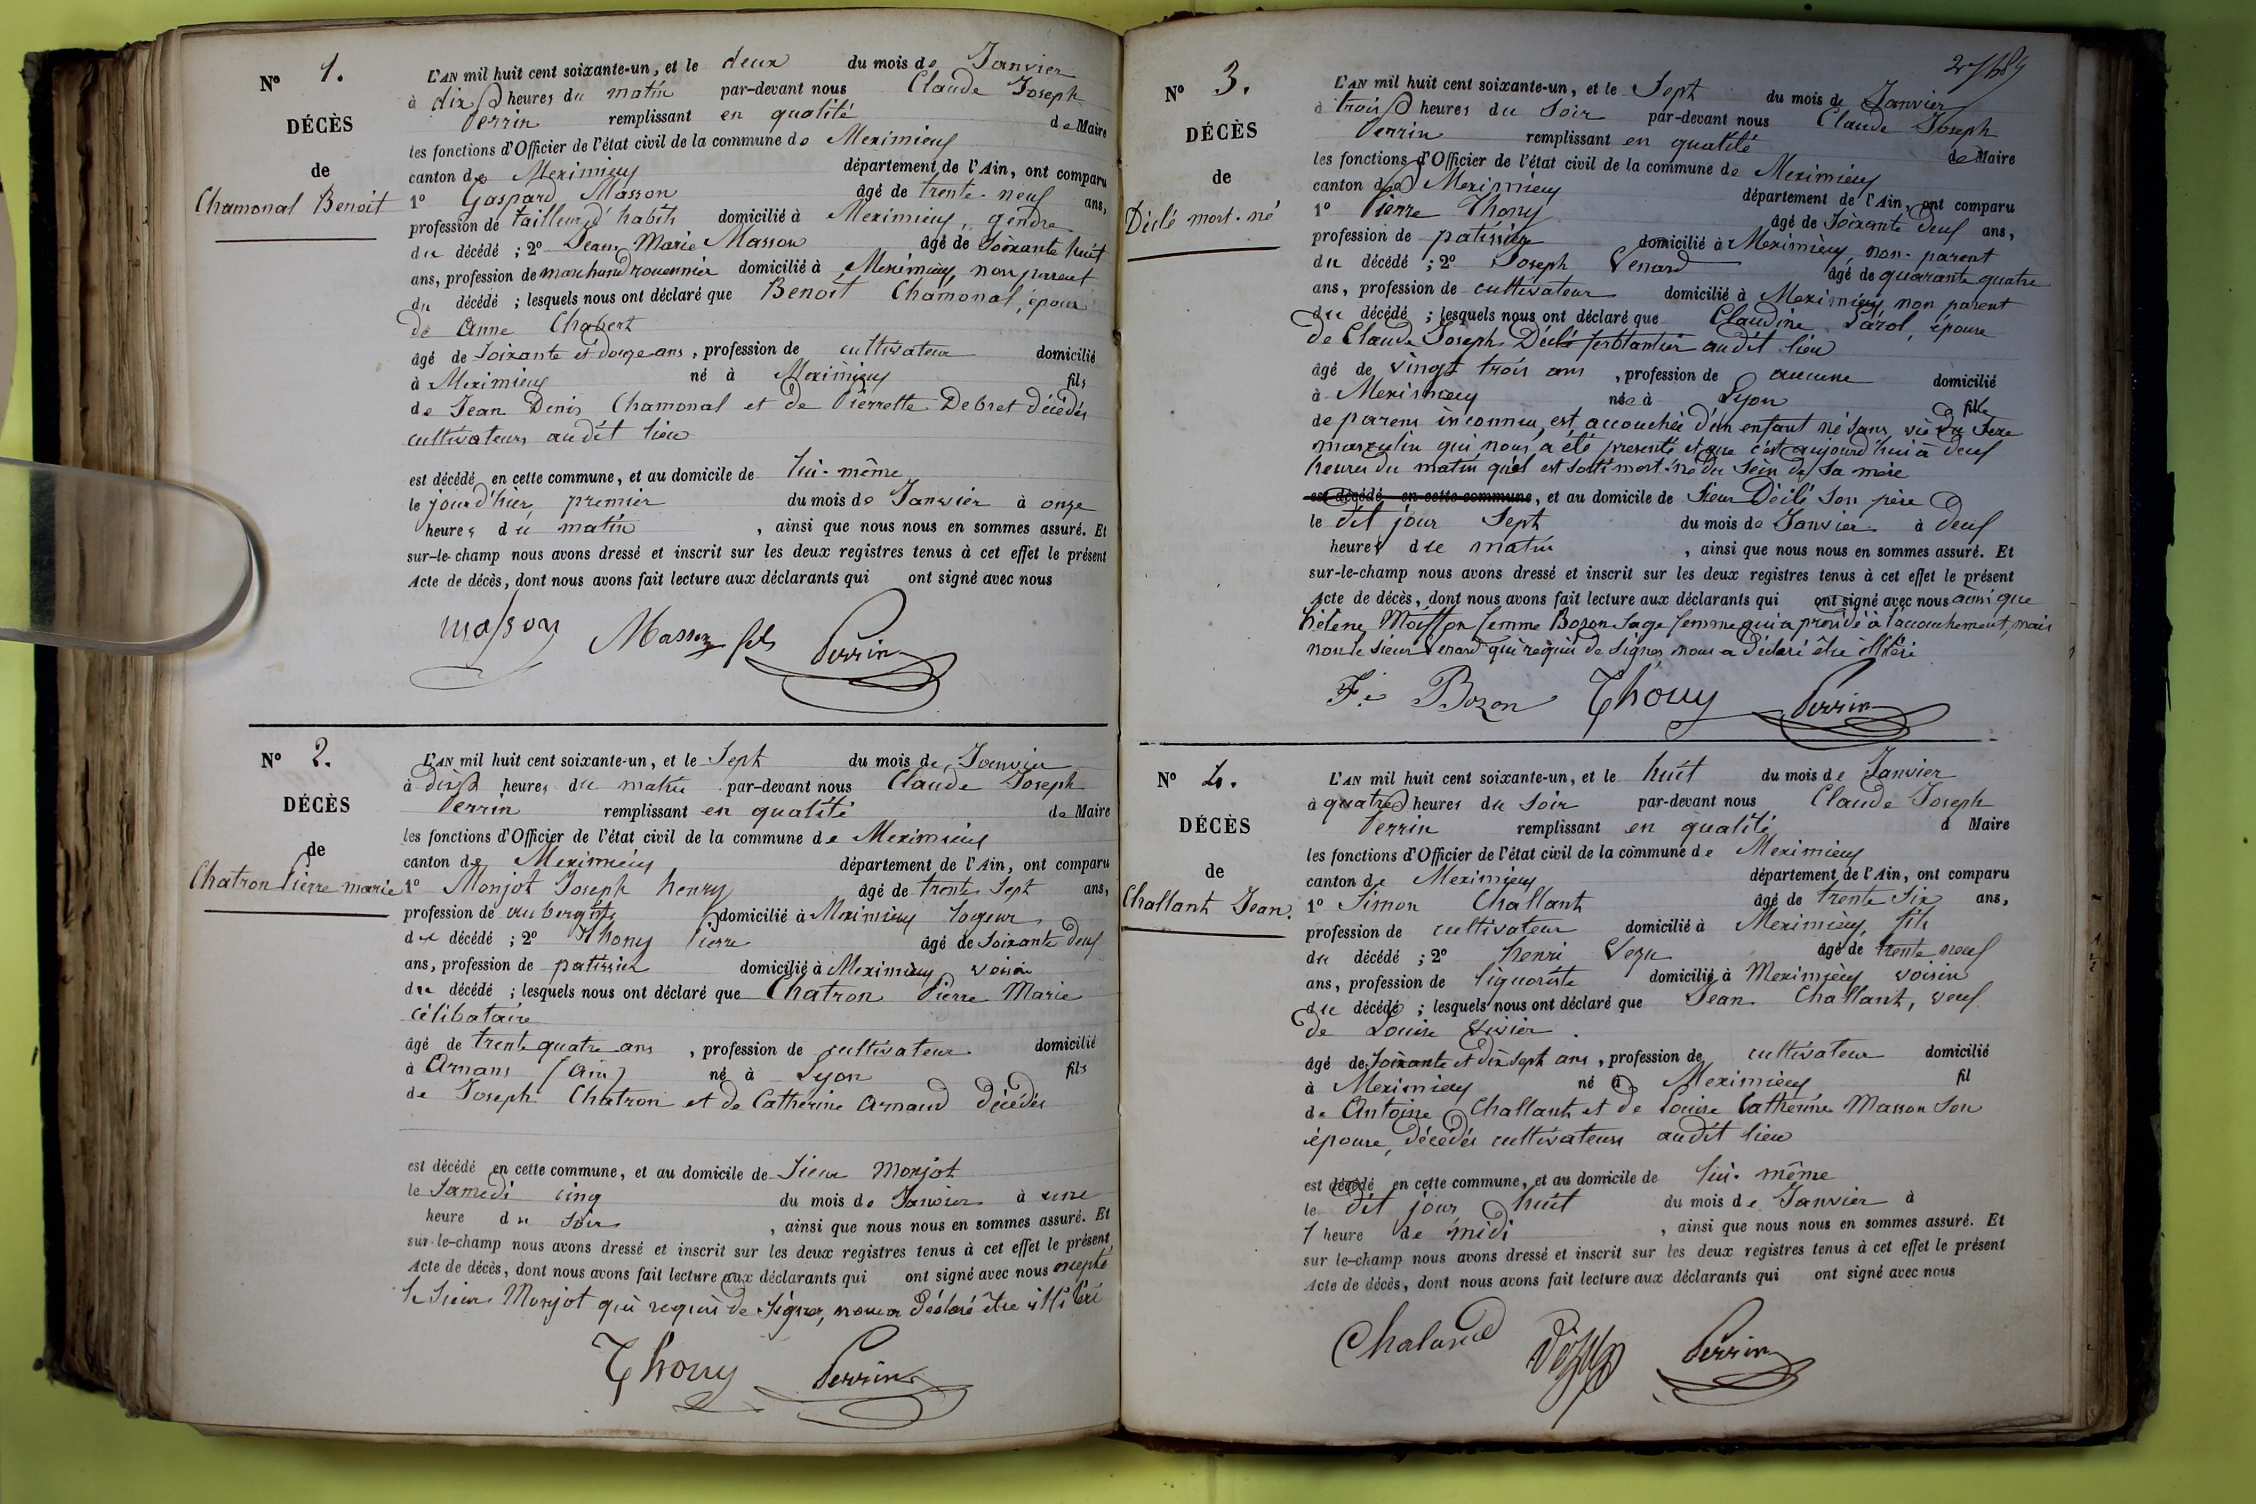 N° 1.
DÉCÈS
de
Chamonal Benoit
L'AN mil huit cent soixante-un, et le deux du mois de Janvier
à dix heures du matin par-devant nous Claude Joseph
Perrin remplissant en qualité de Maire
les fonctions d'Officier de l'état civil de la commune de Meximieux
canton de Meximieux département de l'Ain, ont comparu
1° Gaspard Masson âgé de trente-neuf ans,
profession de tailleur d'habits domicilié à Meximieux, gendre
du décédé ; 2° Jean Marie Masson âgé de soixante huit
ans, profession de marchand rouennier domicilié à Meximieux, non parent
du décédé ; lesquels nous ont déclaré que Benoit Chamonal, époux
de Anne Chabert
âgé de soixante et douze ans, profession de cultivateur domicilié
à Meximieux né à Meximieux fils
de Jean Denis Chamonal et de Pierrette Debret décédés
cultivateurs audit lieu
est décédé en cette commune, et au domicile de lui-même
le jour d'hier, premier du mois de Janvier à onze
heures du matin, ainsi que nous nous en sommes assuré. Et
sur-le-champ nous avons dressé et inscrit sur les deux registres tenus à cet effet le présent
Acte de décès, dont nous avons fait lecture aux déclarants qui ont signé avec nous
Masson Masson fils Perrin
N° 2.
DÉCÈS
de
Chatron Pierre marie
L'AN mil huit cent soixante-un, et le Sept du mois de Janvier
à dix heures du matin par-devant nous Claude Joseph
Perrin remplissant en qualité de Maire
les fonctions d'Officier de l'état civil de la commune de Meximieux
canton de Meximieux département de l'Ain, ont comparu
1° Monjot Joseph henry âgé de trente Sept ans,
profession de aubergiste domicilié à Meximieux logeur
du décédé ; 2° Thony Pierre âgé de soixante deux
ans, profession de patissier domicilié à Meximieux voisin
du décédé ; lesquels nous ont déclaré que Chatron Pierre Marie
célibataire
âgé de trente quatre ans, profession de cultivateur domicilié
à Arnans (Ain) né à Lyon fils
de Joseph Chatron et de Catherine Arnaud décédés
est décédé en cette commune, et au domicile de Sieur Monjot
le Samedi cinq du mois de Janvier à une
heure du soir, ainsi que nous nous en sommes assuré. Et
sur-le-champ nous avons dressé et inscrit sur les deux registres tenus à cet effet le présent
Acte de décès, dont nous avons fait lecture aux déclarants qui ont signé avec nous excepté
le Sieur Monjot qui requis de signer, nous a déclaré être illitéré
Thony Perrin
N° 3.
DÉCÈS
de
Déclé mort-né
L'AN mil huit cent soixante-un, et le Sept du mois de Janvier
à trois heures du Soir par-devant nous Claude Joseph
Perrin remplissant en qualité de Maire
les fonctions d'Officier de l'état civil de la commune de Meximieux
canton de Meximieux département de l'Ain, ont comparu
1° Pierre Thony âgé de soixante deux ans,
profession de patissier domicilié à Meximieux, non-parent
du décédé ; 2° Joseph Venard âgé de quarante quatre
ans, profession de cultivateur domicilié à Meximieux non parent
du décédé ; lesquels nous ont déclaré que Claudine Parol, épouse
de Claude Joseph Déclé ferblantier audit lieu
âgé de vingt trois ans, profession de aucune domicilié
à Meximieux née à Lyon fille
de parens inconnus, est accouchée d'un enfant né sans vie du Sexe
masculin qui nous a été présenté et que c'est aujourd'hui à deux
heures du matin qu'il est sorti mort-né du sein de sa mère
est décédé en cette commune, et au domicile de Sieur Déclé son père
le dit jour Sept du mois de Janvier à deux
heures du matin, ainsi que nous nous en sommes assuré. Et
sur-le-champ nous avons dressé et inscrit sur les deux registres tenus à cet effet le présent
Acte de décès, dont nous avons fait lecture aux déclarants qui ont signé avec nous ainsi que
hélène Moiffon femme Bozon sage femme qui a procédé à l'accouchement, mais
non le sieur Venard qui requis de signer, nous a déclaré être illitéré
Fe Bozon Thony Perrin
N° 4.
DÉCÈS
de
Challant Jean.
L'AN mil huit cent soixante-un, et le huit du mois de Janvier
à quatre heures du Soir par-devant nous Claude Joseph
Perrin remplissant en qualité d Maire
les fonctions d'Officier de l'état civil de la commune de Meximieux
canton de Meximieux département de l'Ain, ont comparu
1° Simon Challant âgé de trente Six ans,
profession de cultivateur domicilié à Meximieux, fils
du décédé ; 2° henri Vezu âgé de trente neuf
ans, profession de liquoriste domicilié à Meximieux voisin
du décédé ; lesquels nous ont déclaré que Jean Challant, veuf
de Louise Vivier
âgé de Soixante et dix Sept ans, profession de cultivateur domicilié
à Meximieux né à Meximieux fil
de Antoine Challant et de Louise Catherine Masson son
épouse, décédés cultivateurs audit lieu
est décédé en cette commune, et au domicile de lui-même
le dit jour huit du mois de Janvier à
1 heure de midi, ainsi que nous nous en sommes assuré. Et
sur le-champ nous avons dressé et inscrit sur les deux registres tenus à cet effet le présent
Acte de décès, dont nous avons fait lecture aux déclarants qui ont signé avec nous
Chaland Vezu Perrin